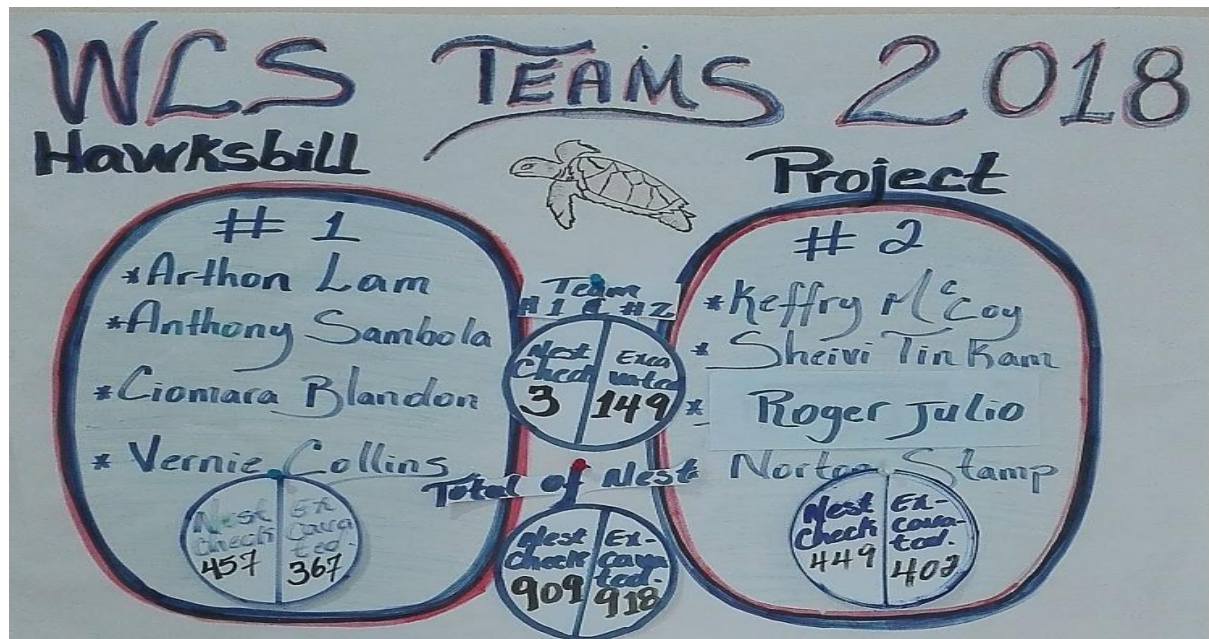 WCS TEAMS 2018
Hawksbill Project
# 1
*Arthon Lam
*Anthony Sambola
*Ciomara Blandon
* Vernie Collins
Nest Check 457
Ex cava ted. 367
Team
#1 & #2
Nest Check 3
Exca vated 149
Total of Nest
Nest Check 909
Ex- cava ted. 918
# 2
*Keffry McCoy
* Sheivi Tin Kam
* Roger Julio
* Norton Stamp
Nest Check 449
Ex- cava- ted. 402